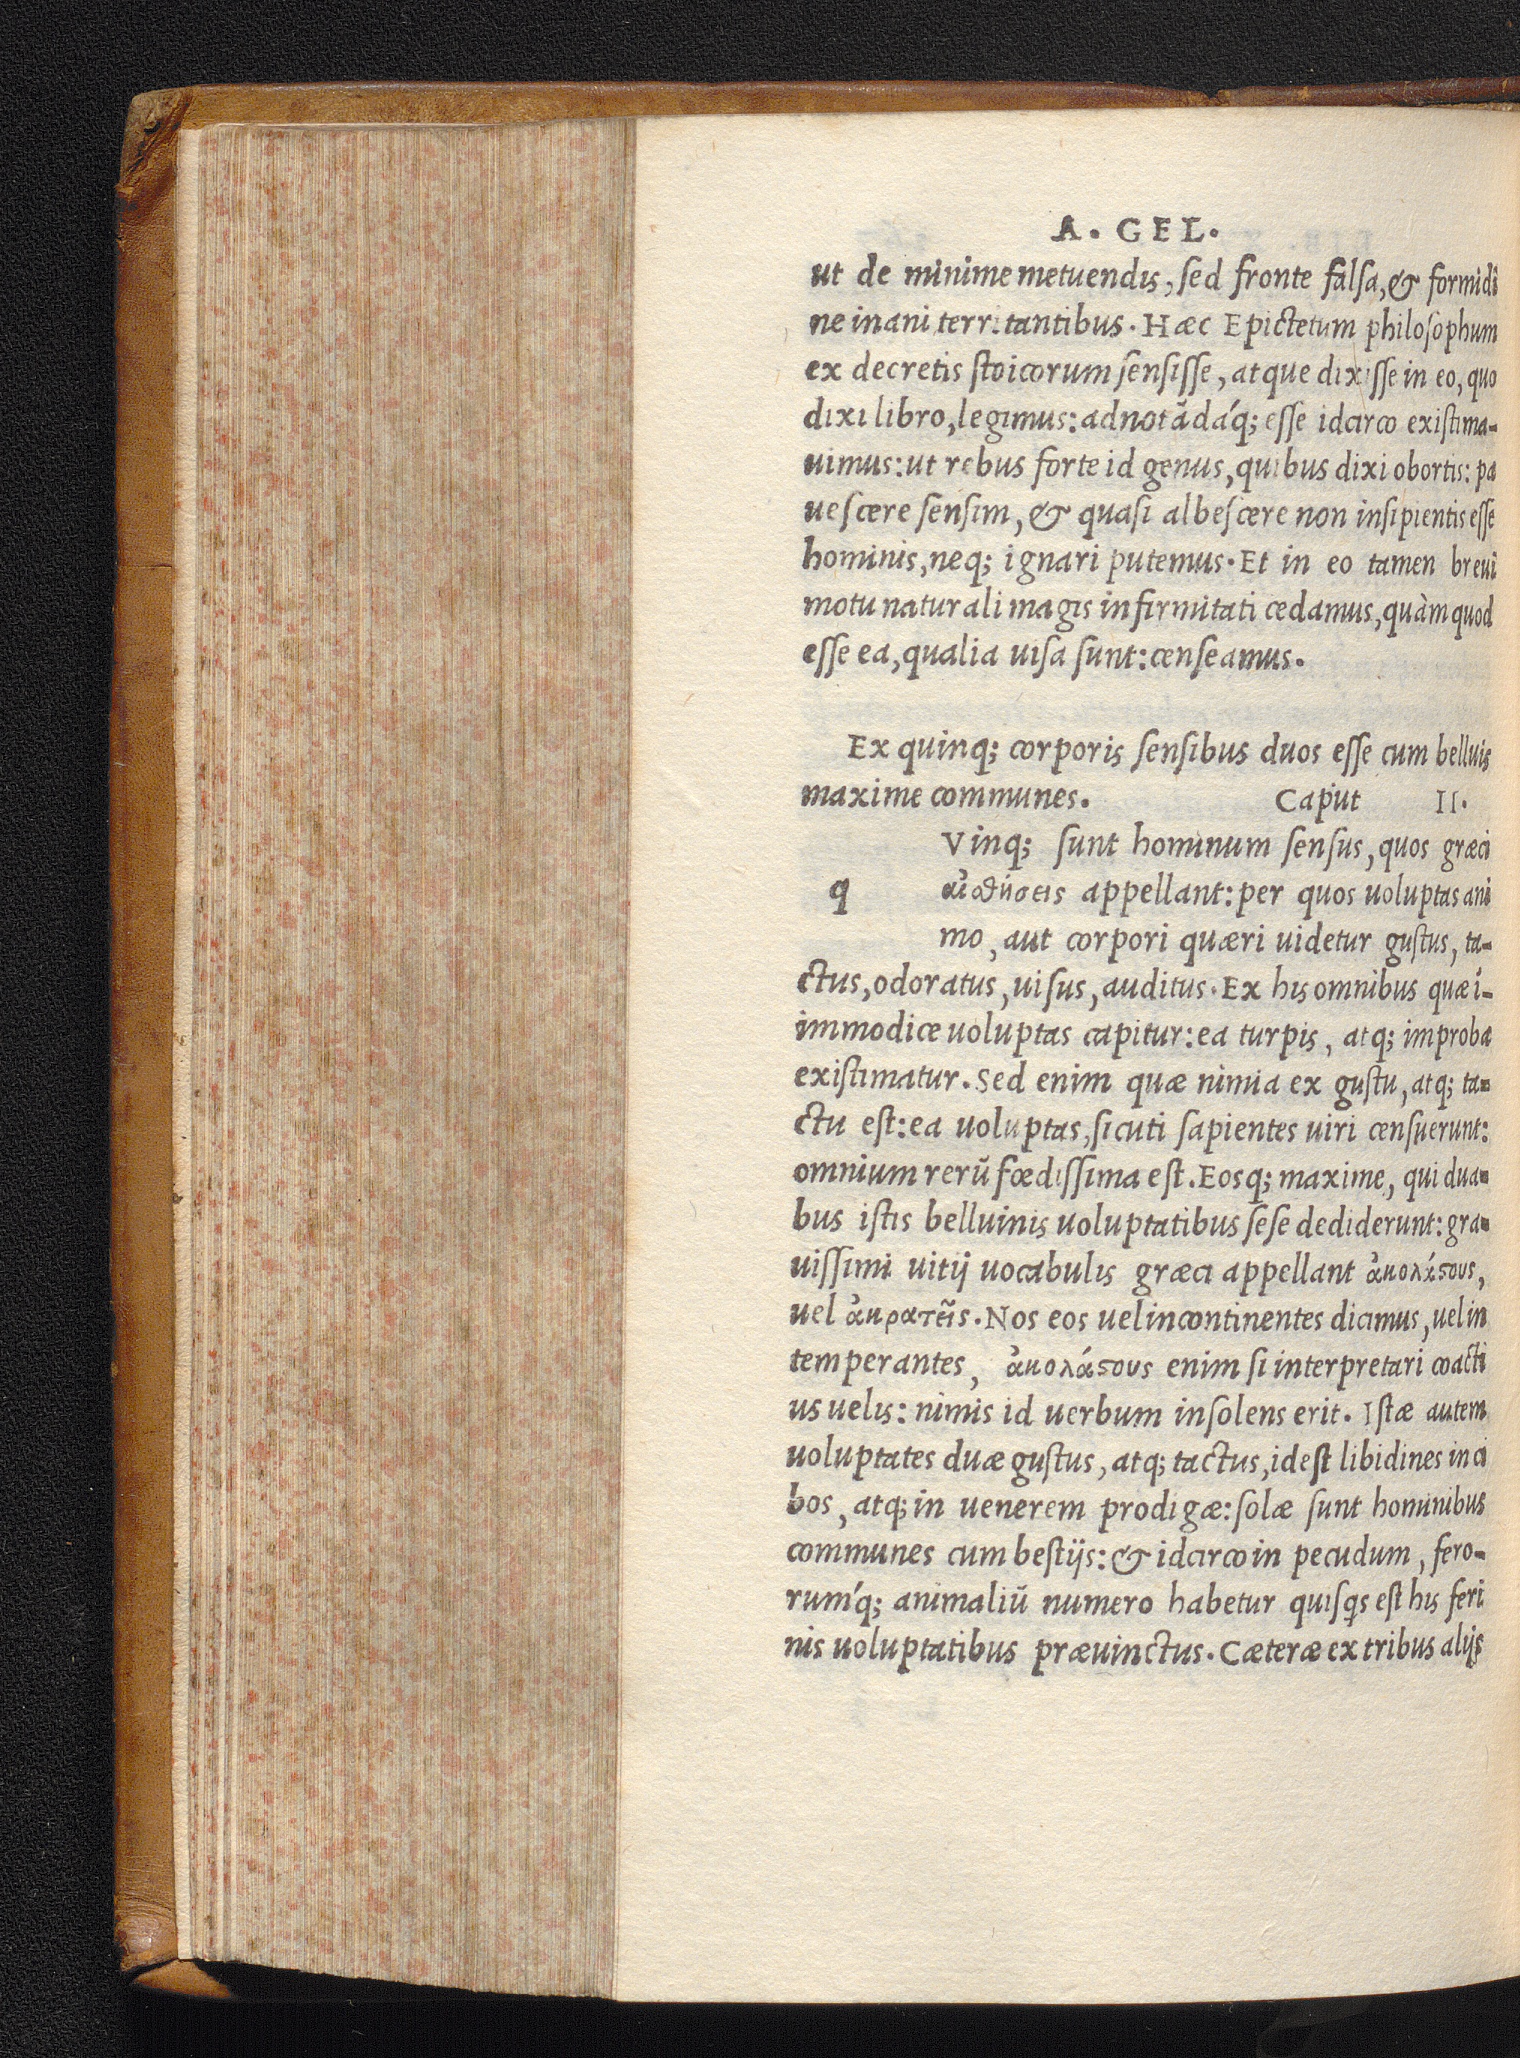 A. GEL.
ut de minime metuendis, sed fronte falsa, & formidi
ne inani territantibus. Hæc Epictetum philosophum
ex decretis stoicorum sensisse, atque dixisse in eo, quo
dixi libro, legimus: adnotãdáq; esse idcirco existima-
uimus: ut rebus forte id genus, quibus dixi obortis: pa
uescere sensim, & quasi albescere non insipientis esse
hominis, neq; ignari putemus. Et in eo tamen breui
motu naturali magis infirmitati cedamus, quàm quod
esse ea, qualia uisa sunt: censeamus.
Ex quinq; corporis sensibus duos esse cum belluis
maxime communes. Caput II.
Vinq; sunt hominum sensus, quos græci
q αἰσθήσεις appellant: per quos uoluptas ani
mo, aut corpori quæri uidetur gustus, ta-
ctus, odoratus, uisus, auditus. Ex his omnibus quæ í-
immodice uoluptas capitur: ea turpis, atq; improba
existimatur. Sed enim quæ nimia ex gustu, atq; ta-
ctu est: ea uoluptas, sicuti sapientes uiri censuerunt:
omnium rerũ fœdissima est. Eosq; maxime, qui dua-
bus istis belluinis uoluptatibus sese dediderunt: gra-
uissimi uitij uocabulis græci appellant ἀκολάϛους,
uel ἀκρατεῖς. Nos eos uel incontinentes dicimus, uel in
temperantes, ἀκολάϛους enim si interpretari coacti
us uelis: nimis id uerbum insolens erit. Istæ autem
uoluptates duæ gustus, atq; tactus, idest libidines in ci
bos, atq; in uenerem prodigæ: solæ sunt hominibus
communes cum bestijs: & idcirco in pecudum, fero-
rumq́; animaliũ numero habetur quisq̃s est his feri
nis uoluptatibus præuinctus. Cæteræ ex tribus alijs